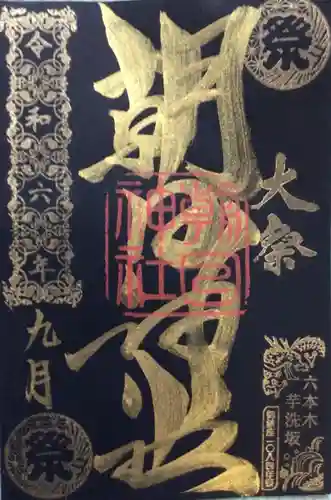 祭
大祭
朝日神社
朝日神社
令和六年
九月
祭
六本木
芋洗坂